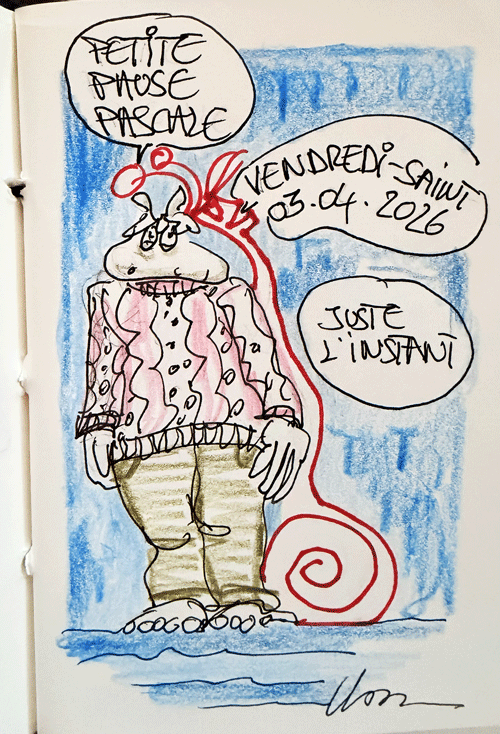 PETITE
PAUSE
PASCALE
VENDREDI-SAINT
03.04.2026
JUSTE
L'INSTANT